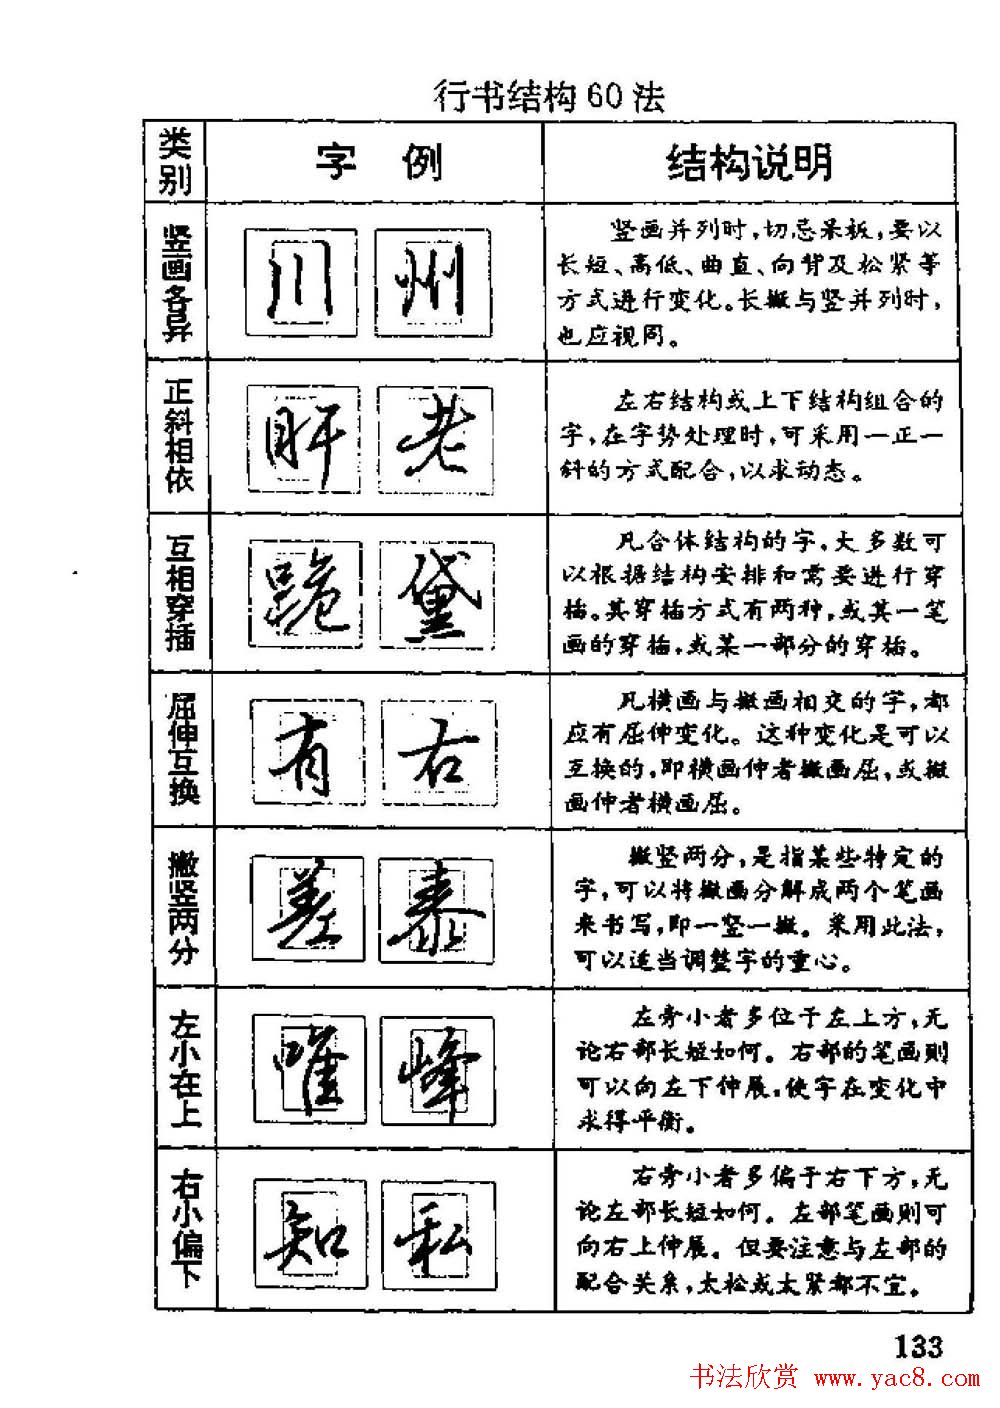 行书结构60法
类别
字 例
结构说明
竖画各异
川 州
竖画并列时,切忌呆板,要以
长短、高低、曲直、向背及松紧等
方式进行变化。长撇与竖并列时,
也应视同。
正斜相依
肝 老
左右结构或上下结构组合的
字,在字势处理时,可采用一正一
斜的方式配合,以求动态。
互相穿插
跪 黛
凡合体结构的字,大多数可
以根据结构安排和需要进行穿
插。其穿插方式有两种,或其一笔
画的穿插,或某一部分的穿插。
屈伸互换
有 右
凡横画与撇画相交的字,都
应有屈伸变化。这种变化是可以
互换的,即横画伸者撇画屈,或撇
画伸者横画屈。
撇竖两分
差 泰
撇竖两分,是指某些特定的
字,可以将撇画分解成两个笔画
来书写,即一竖一撇。采用此法,
可以适当调整字的重心。
左小在上
唯 峰
左旁小者多位于左上方,无
论右部长短如何。右部的笔画则
可以向左下伸展,使字在变化中
求得平衡。
右小偏下
知 私
右旁小者多偏于右下方,无
论左部长短如何。左部笔画则可
向右上伸展。但要注意与左部的
配合关系,太松或太紧都不宜。
133
书法欣赏 www.yac8.com